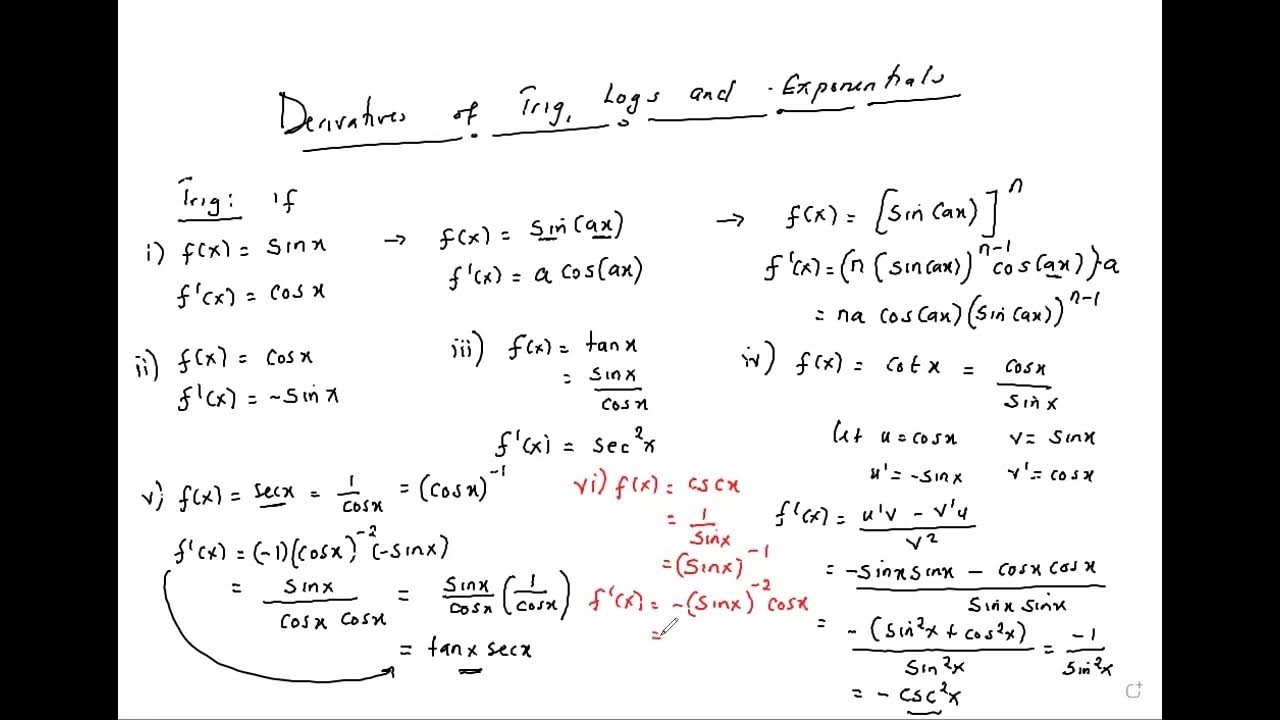 Derivatives of Trig, Logs and Exponentials
Trig: If
i) f(x) = sinx → f(x) = sin(ax) → f(x) = [sin(ax)]^n
f'(x) = cosx
f'(x) = a cos(ax)
f'(x) = (n(sin(ax))^{n-1} cos(ax))·a
= na cos(ax)(sin(ax))^{n-1}
ii) f(x) = cosx
f'(x) = -sinx
iii) f(x) = tanx
= sinx/cosx
f'(x) = sec²x
iv) f(x) = cotx = cosx/sinx
let u = cosx v = sinx
u' = -sinx v' = cosx
f'(x) = (u'v - v'u)/v²
= (-sinx sinx - cosx cosx)/(sinx sinx)
= -(sin²x + cos²x)/sin²x = -1/sin²x
= -csc²x
v) f(x) = secx = 1/cosx = (cosx)^{-1}
f'(x) = (-1)(cosx)^{-2}(-sinx)
= sinx/(cosx cosx) = sinx/cosx (1/cosx)
= tanx secx
vi) f(x) = cscx
= 1/sinx
= (sinx)^{-1}
f'(x) = -(sinx)^{-2} cosx
=